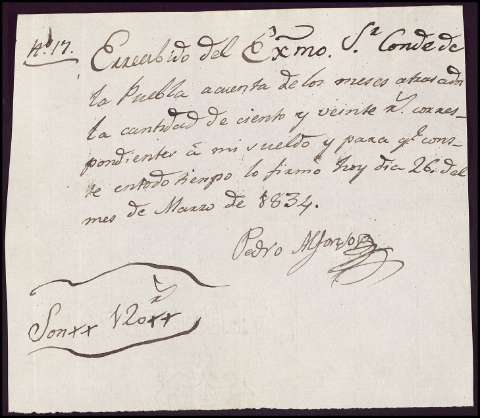 Nº 17. Errecibido del Exmo. Sr. Conde de
la Puebla acuenta de los meses atrasados
la cantidad de ciento y veinte rs. corres-
pondientes á mi sueldo y para qe. cons-
te entodo tienpo lo firmo hoy dia 26. del
mes de Marzo de 1834.
Pedro Alfonso
Sonxx 120xx rs